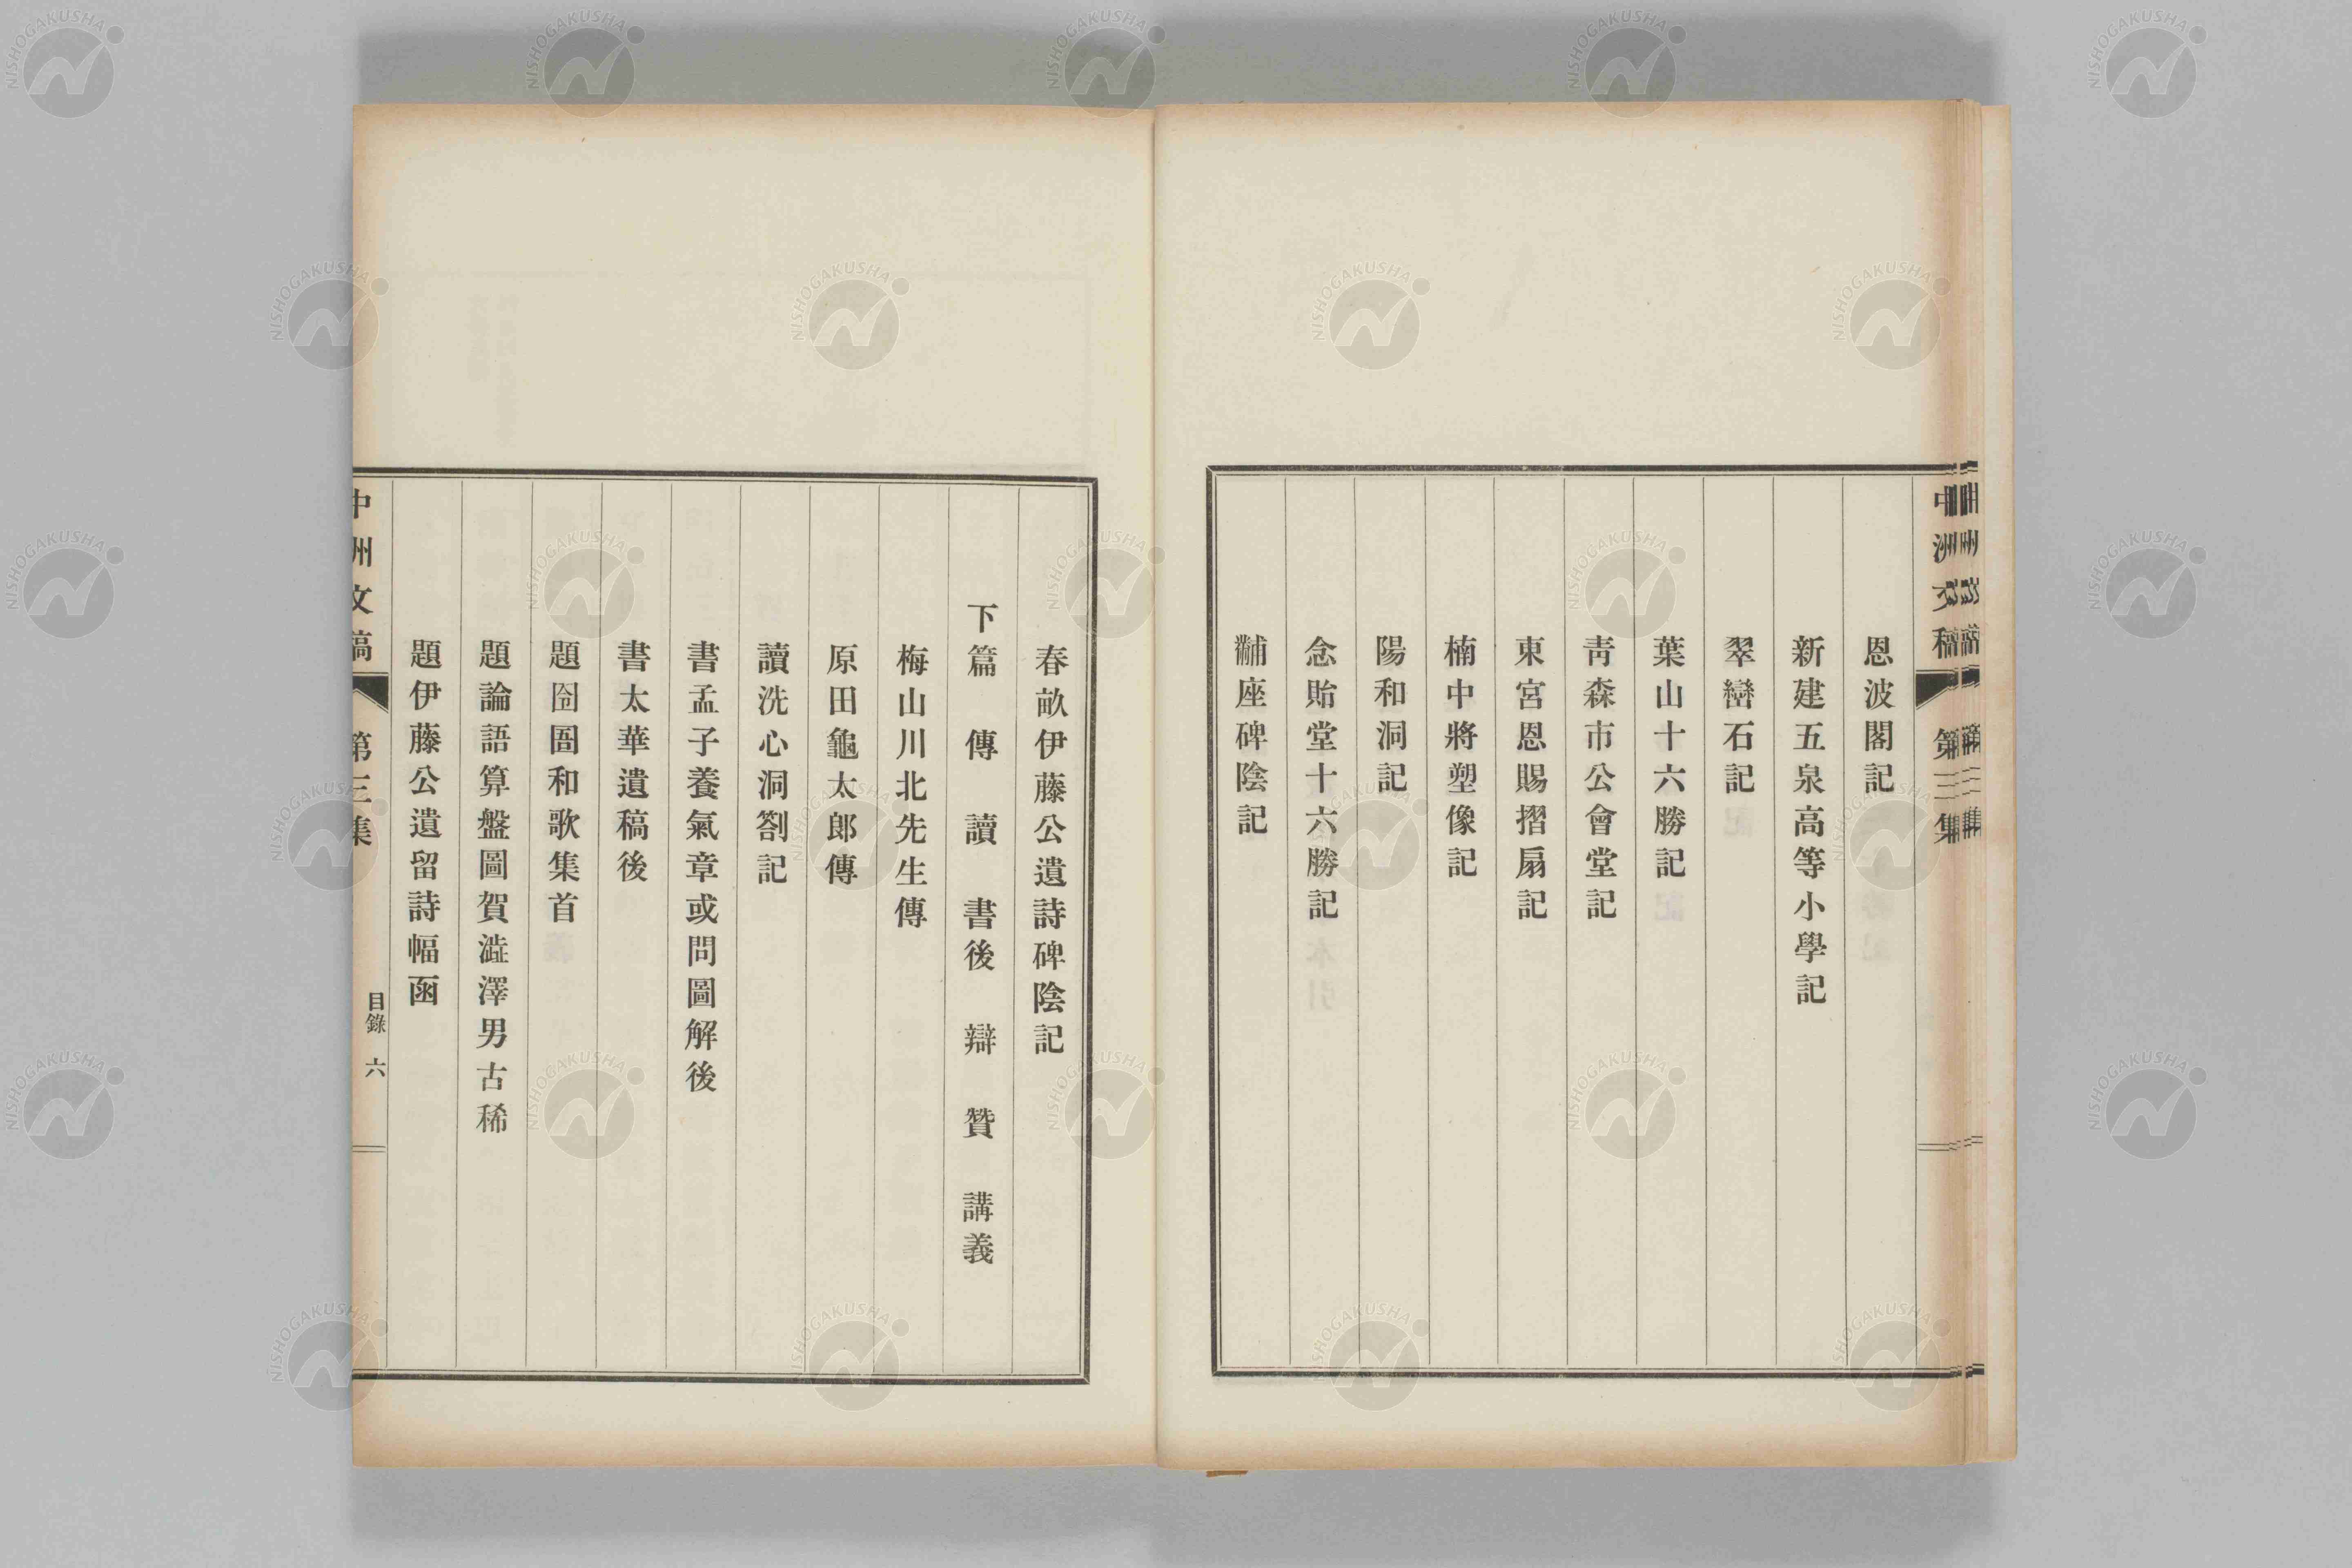 中洲文稿 第三集
恩波閣記
新建五泉高等小學記
翠巒石記
葉山十六勝記
靑森市公會堂記
東宮恩賜摺扇記
楠中將塑像記
陽和洞記
念貽堂十六勝記
黼座碑陰記
春畝伊藤公遺詩碑陰記
下篇 傳 讀 書後 辯 贊 講義
梅山川北先生傳
原田龜太郎傳
讀洗心洞劄記
書孟子養氣章或問圖解後
書太華遺稿後
題囹圄和歌集首
題論語算盤圖賀澁澤男古稀
題伊藤公遺留詩幅函
中洲文稿 第三集 目錄 六
NISHOGAKUSHA